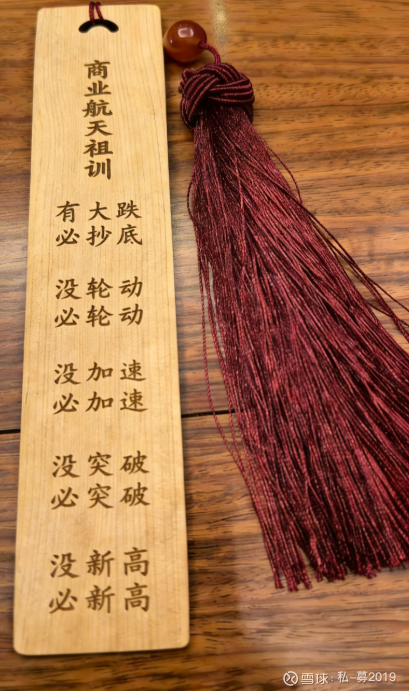 商业航天祖训
有大跌
必抄底
没轮动
必轮动
没加速
必加速
没突破
必突破
没新高
必新高
雪球：私-募2019